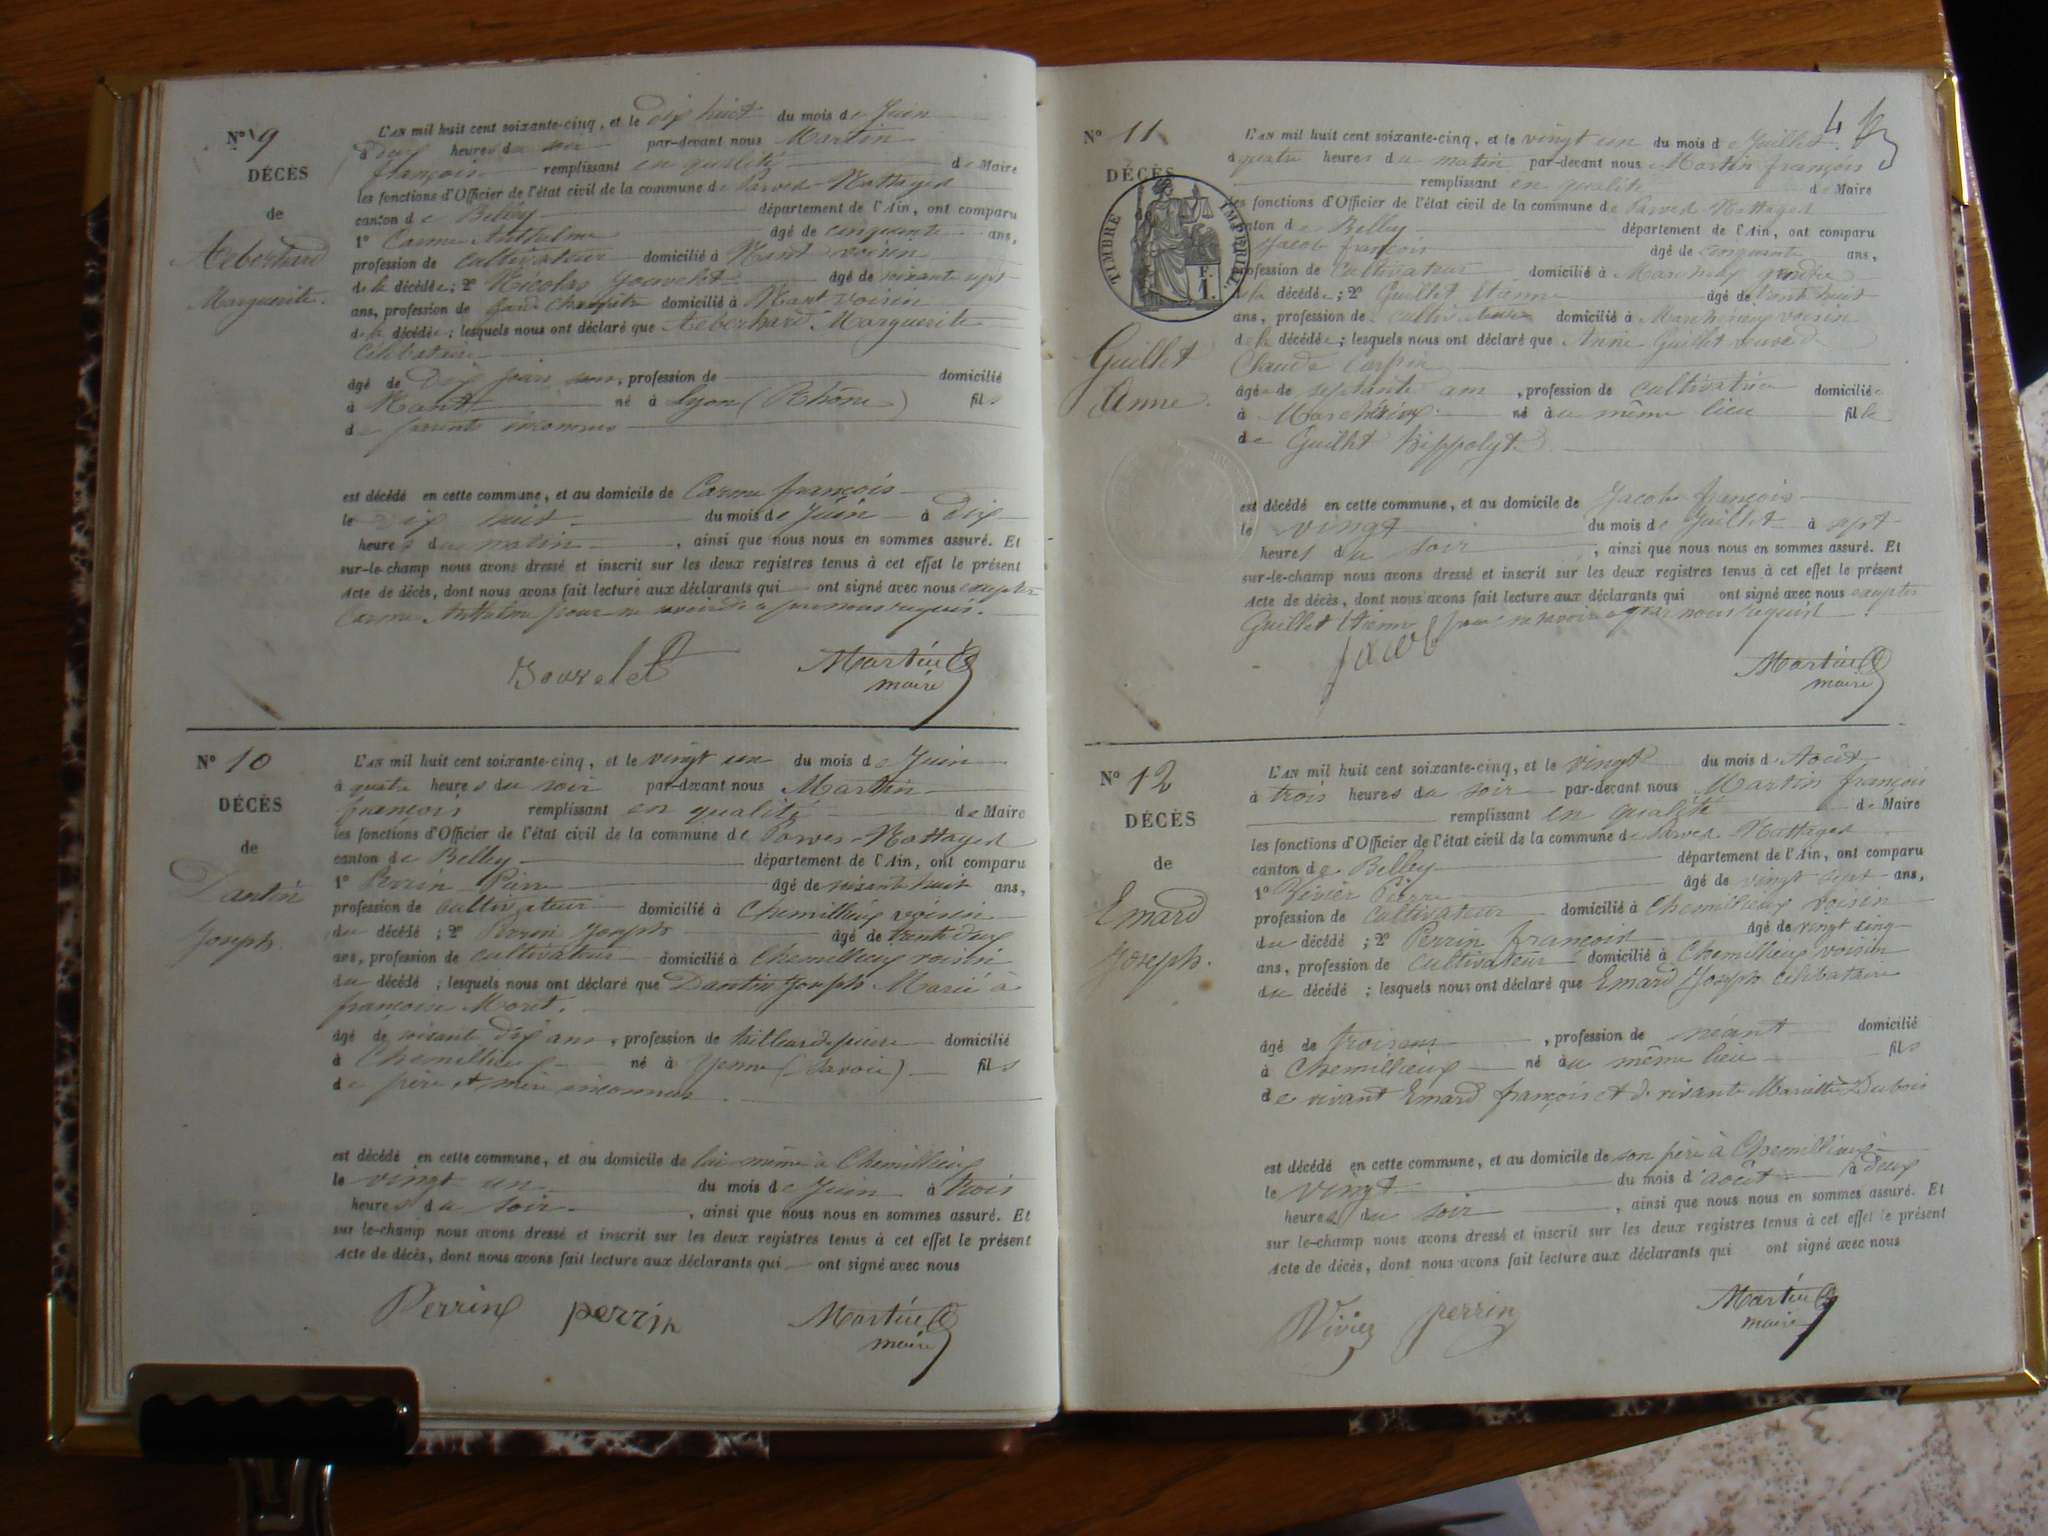 N° 9
DÉCÈS
de
Aeberhard
Marguerite.
L'AN mil huit cent soixante-cinq, et le Dix huit du mois de Juin
à deux heures du soir par-devant nous Martin
françois remplissant en qualité de Maire
les fonctions d'Officier de l'état civil de la commune de Parves-Nattages
canton de Belley département de l'Ain, ont comparu
1° Carme Anthelme âgé de cinquante ans,
profession de cultivateur domicilié à Nant voisin
de la décédée; 2° Nicolas âgé de soixante sept
ans, profession de Garde Champêtre domicilié à Nant voisin
de la décédée; lesquels nous ont déclaré que Aeberhard Marguerite
Célibataire
âgé de Dix jours, profession de domicilié
à Nant né à Lyon (Rhône) fils
de parents inconnus
est décédé en cette commune, et au domicile de Carme françois
le dix huit du mois de Juin à Dix
heures du matin, ainsi que nous nous en sommes assuré. Et
sur-le-champ nous avons dressé et inscrit sur les deux registres tenus à cet effet le présent
Acte de décès, dont nous avons fait lecture aux déclarants qui ont signé avec nous excepter
Carme Anthelme pour ne savoir de ce par nous requis.
Martin
maire
N° 10
DÉCÈS
de
Dantin
Joseph.
L'AN mil huit cent soixante-cinq, et le vingt un du mois de Juin
à quatre heures du soir par-devant nous Martin
françois remplissant en qualité de Maire
les fonctions d'Officier de l'état civil de la commune de Parves-Nattages
canton de Belley département de l'Ain, ont comparu
1° Perrin Pierre âgé de soixante huit ans,
profession de cultivateur domicilié à Chemillieux voisin
du décédé; 2° Perrin Joseph âgé de trente deux
ans, profession de cultivateur domicilié à Chemillieux voisin
du décédé; lesquels nous ont déclaré que Dantin Joseph Marié à
françoise Moret.
âgé de soixante dix ans, profession de tailleur de pierre domicilié
à Chemillieux né à Yenne (Savoie) fils
de père et mère inconnus
est décédé en cette commune, et au domicile de lui même à Chemillieux
le vingt un du mois de Juin à trois
heures du soir, ainsi que nous nous en sommes assuré. Et
sur-le-champ nous avons dressé et inscrit sur les deux registres tenus à cet effet le présent
Acte de décès, dont nous avons fait lecture aux déclarants qui ont signé avec nous
Perrin perrin Martin
maire
4
N° 11
DÉCÈS
TIMBRE IMPÉRIAL
1 F.
Guillet
Anne.
L'AN mil huit cent soixante-cinq, et le vingt un du mois de Juillet
à quatre heures du matin par-devant nous Martin françois
remplissant en qualité de Maire
les fonctions d'Officier de l'état civil de la commune de Parves-Nattages
canton de Belley département de l'Ain, ont comparu
Jacob françois âgé de cinquante ans,
profession de Cultivateur domicilié à gendre
de la décédée; 2° Guillet Etienne âgé de trente huit
ans, profession de cultivateur domicilié à voisin
de la décédée; lesquels nous ont déclaré que Anne Guillet veuve de
Claude
âgée de septante ans, profession de cultivatrice domiciliée
à né au même lieu fille
de Guillet hippolyte
est décédé en cette commune, et au domicile de Jacob françois
le vingt du mois de Juillet à sept
heures du soir, ainsi que nous nous en sommes assuré. Et
sur-le-champ nous avons dressé et inscrit sur les deux registres tenus à cet effet le présent
Acte de décès, dont nous avons fait lecture aux déclarants qui ont signé avec nous excepter
Guillet Etienne pour ne savoir par nous requis.
Jacob
Martin
maire
N° 12
DÉCÈS
de
Emard
Joseph.
L'AN mil huit cent soixante-cinq, et le vingt du mois d Août
à trois heures du soir par-devant nous Martin françois
remplissant en qualité de Maire
les fonctions d'Officier de l'état civil de la commune de Parves-Nattages
canton de Belley département de l'Ain, ont comparu
1° Vivier Pierre âgé de vingt sept ans,
profession de Cultivateur domicilié à Chemillieux voisin
du décédé; 2° Perrin françois âgé de vingt cinq
ans, profession de Cultivateur domicilié à Chemillieux voisin
du décédé; lesquels nous ont déclaré que Emard Joseph célibataire
âgé de trois ans, profession de néant domicilié
à Chemillieux né au même lieu fils
de vivant Emard françois et de vivante Mariette Dubois
est décédé en cette commune, et au domicile de son père à Chemillieux
le vingt du mois d'août à deux
heures du soir, ainsi que nous nous en sommes assuré. Et
sur le-champ nous avons dressé et inscrit sur les deux registres tenus à cet effet le présent
Acte de décès, dont nous avons fait lecture aux déclarants qui ont signé avec nous
Vivier perrin Martin
maire